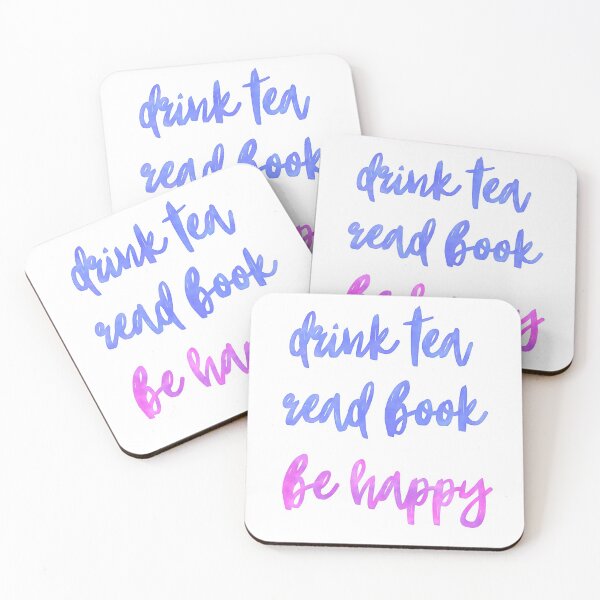 drink tea
read book
drink tea
read book
be happy
drink tea
read book
be ha
drink tea
read book
be happy